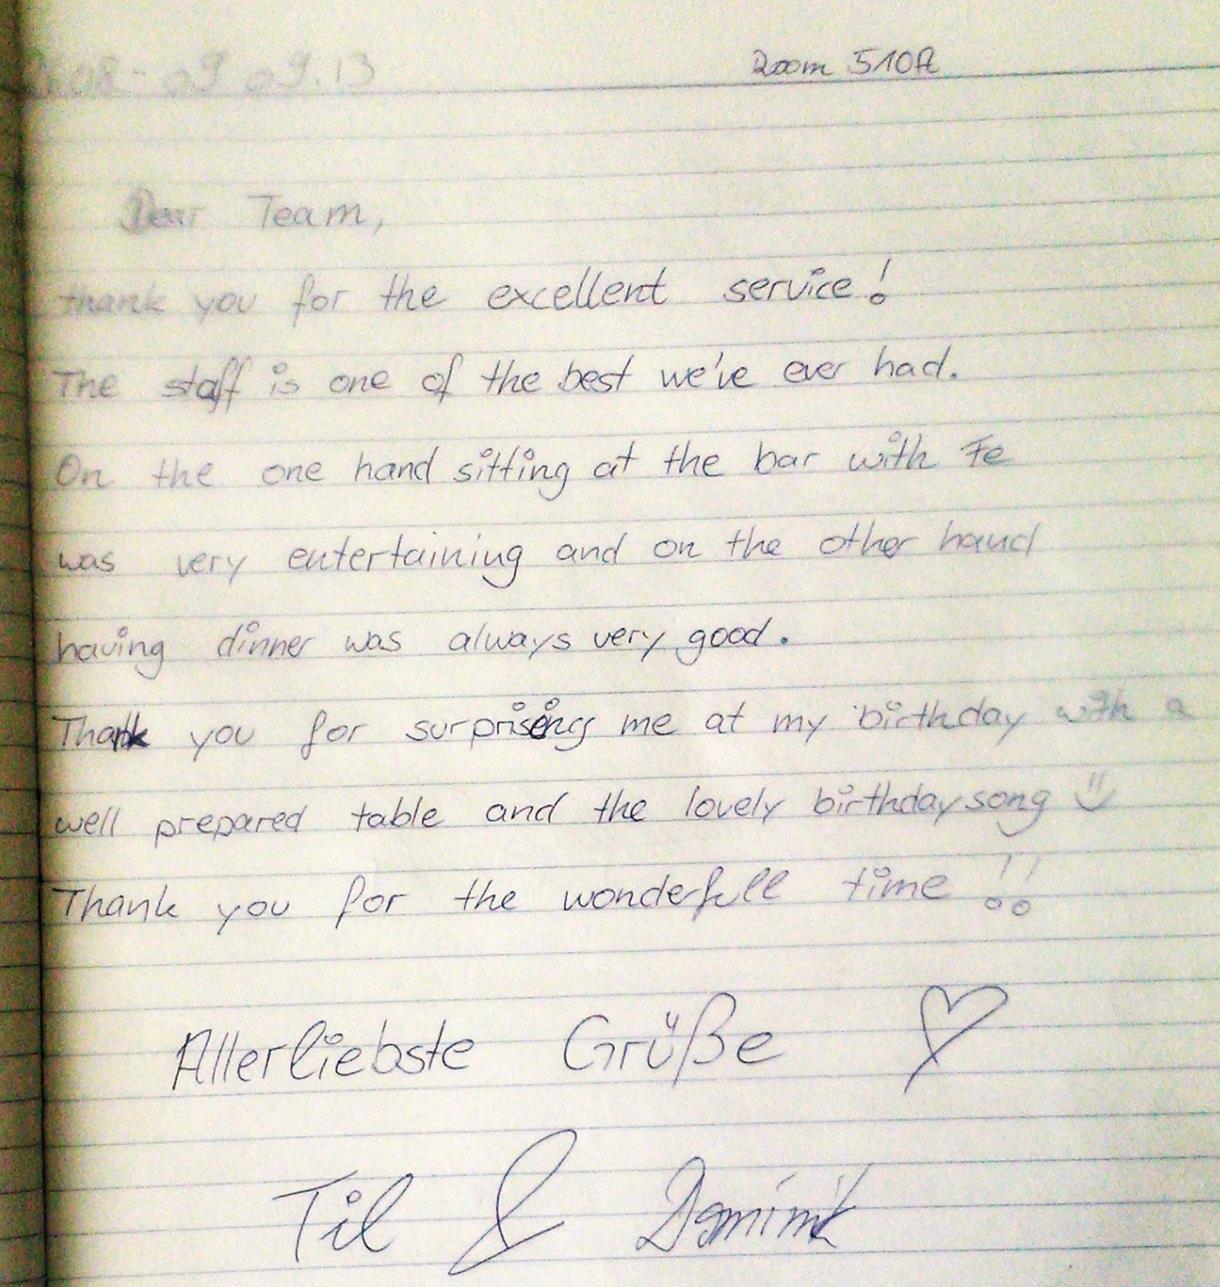 08 - 09.09.13
Room 510A
Dear Team,
thank you for the excellent service!
The staff is one of the best we've ever had.
On the one hand sitting at the bar with Fe
was very entertaining and on the other hand
having dinner was always very good.
Thank you for surprising me at my birthday with a
well prepared table and the lovely birthdaysong
Thank you for the wonderfull time !!
Allerliebste Grüße
Til & Dominik